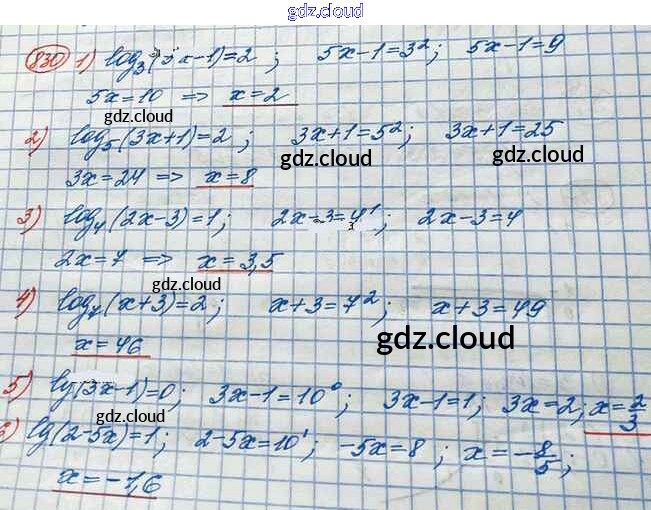 gdz.cloud
830 1) log₃(5x-1)=2 ; 5x-1=3²; 5x-1=9
5x=10 => x=2
gdz.cloud
2) log₅(3x+1)=2 ; 3x+1=5²; 3x+1=25
gdz.cloud gdz.cloud gdz.cloud
3x=24 => x=8
3) log₄(2x-3)=1; 2x-3=4¹; 2x-3=4
2x=7 => x=3,5
gdz.cloud
4) log₇(x+3)=2; x+3=7²; x+3=49
x=46
gdz.cloud gdz.cloud
5) lg(3x-1)=0; 3x-1=10⁰; 3x-1=1; 3x=2; x=2/3
gdz.cloud
6) lg(2-5x)=1; 2-5x=10¹; -5x=8; x=-8/5;
x=-1,6